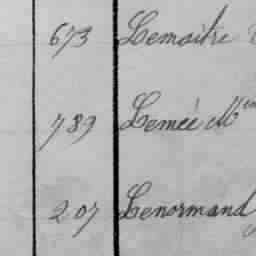 673 Lemaitre
789 Lemée Mme
207 Lenormand